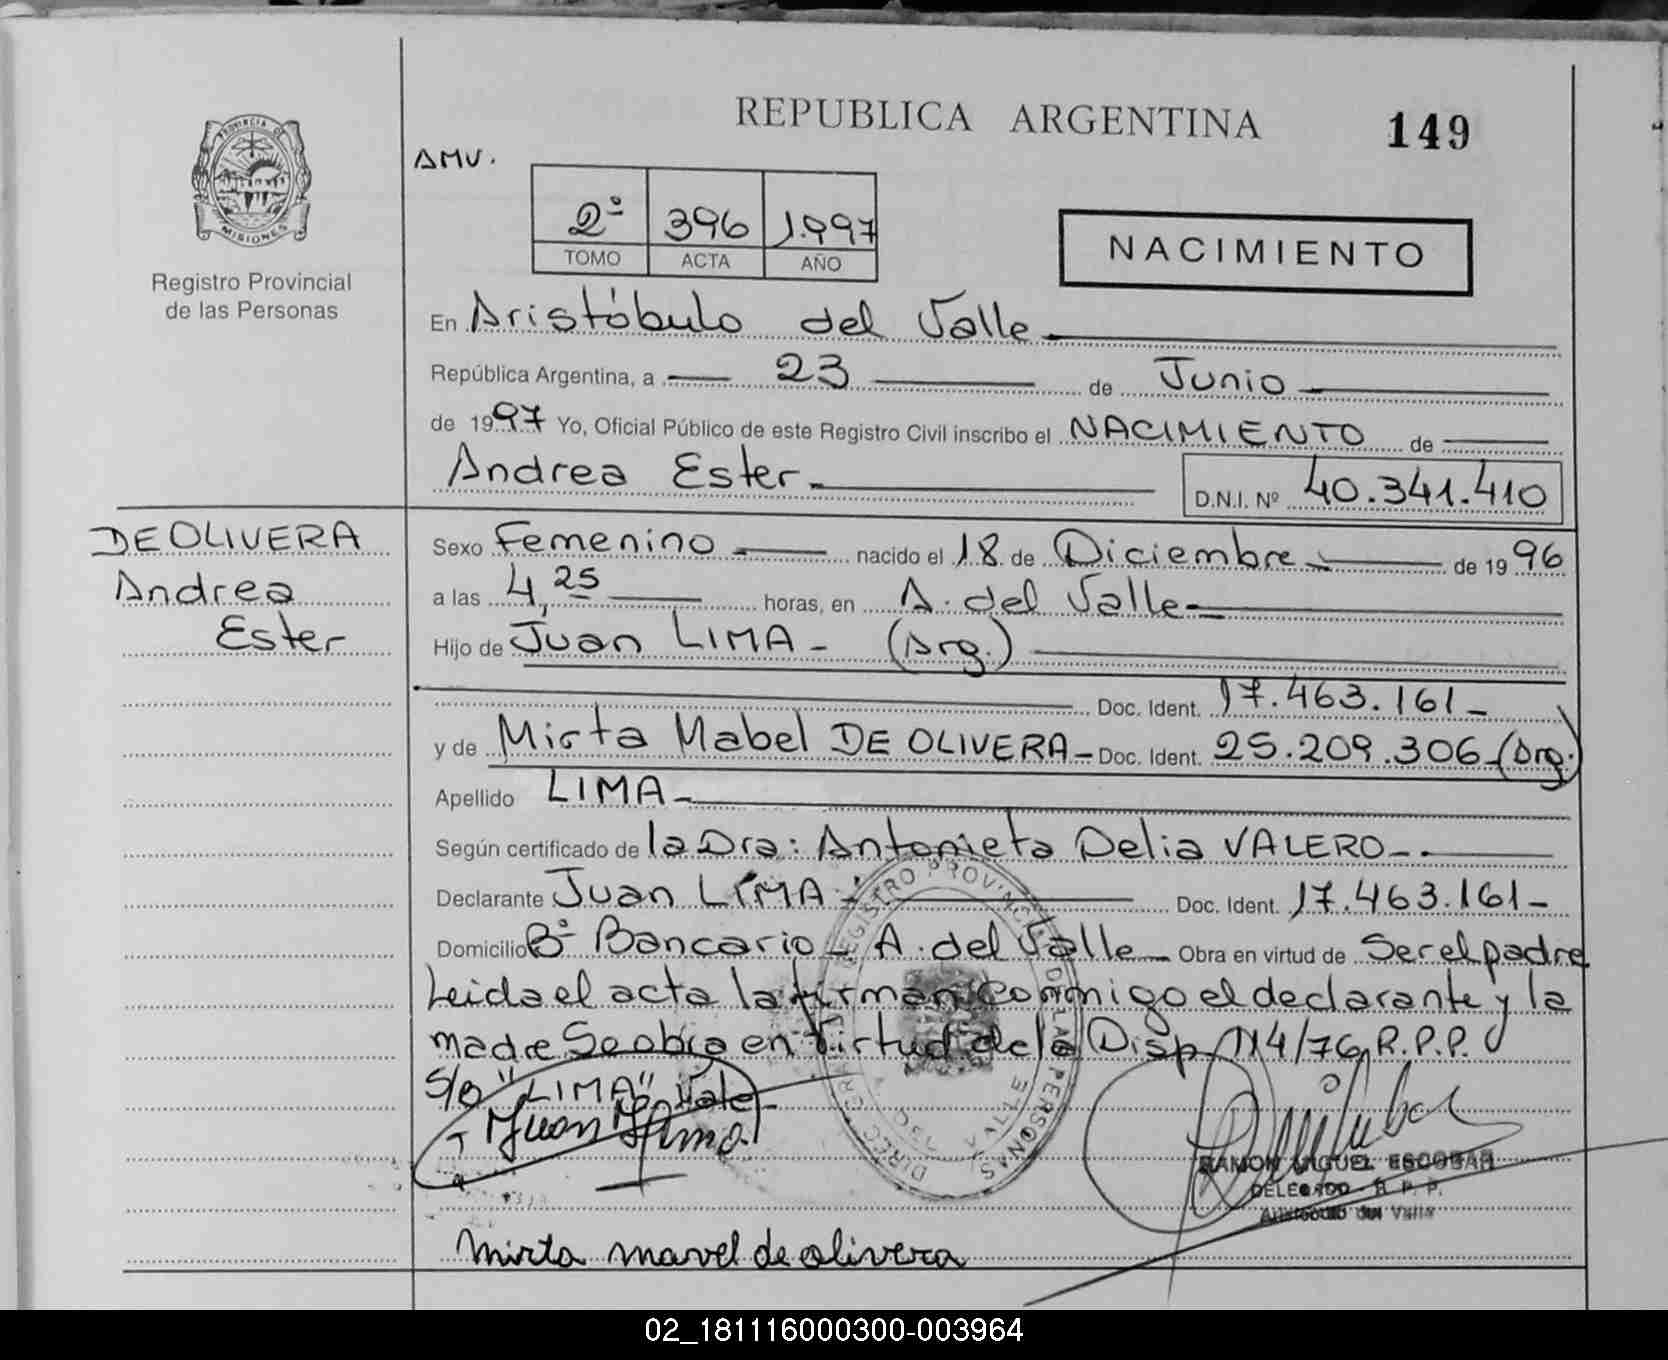 REPUBLICA ARGENTINA 149
PROVINCIA DE
MISIONES
Registro Provincial
de las Personas
AMV.
2º 396 1.997
TOMO ACTA AÑO
NACIMIENTO
En Aristóbulo del Valle
República Argentina, a 23 de Junio
de 1997 Yo, Oficial Público de este Registro Civil inscribo el NACIMIENTO de
Andrea Ester D.N.I. Nº 40.341.410
DE OLIVERA
Andrea
Ester
Sexo Femenino nacido el 18 de Diciembre de 1996
a las 4,25 horas, en A. del Valle
Hijo de Juan LIMA - (Arg.)
Doc. Ident. 17.463.161-
y de Mirta Mabel DE OLIVERA - Doc. Ident. 25.209.306 (Arg.)
Apellido LIMA -
Según certificado de la Dra: Antonieta Delia VALERO -
Declarante Juan LIMA Doc. Ident. 17.463.161-
Domicilio Bº Bancario - A. del Valle - Obra en virtud de Ser el padre
Leida el acta la firman conmigo el declarante y la
madre Se obra en Virtud de la Disp 114/76 R.P.P.
S/B "LIMA" Vale
Juan Lima
DIREC. GRAL. REGISTRO PROVINCIAL DE LAS PERSONAS
VALLE
RAMON MIGUEL ESCOBAR
DELEGADO - R. P. P.
Aristobulo del Valle
mirta mavel de olivera
02_181116000300-003964